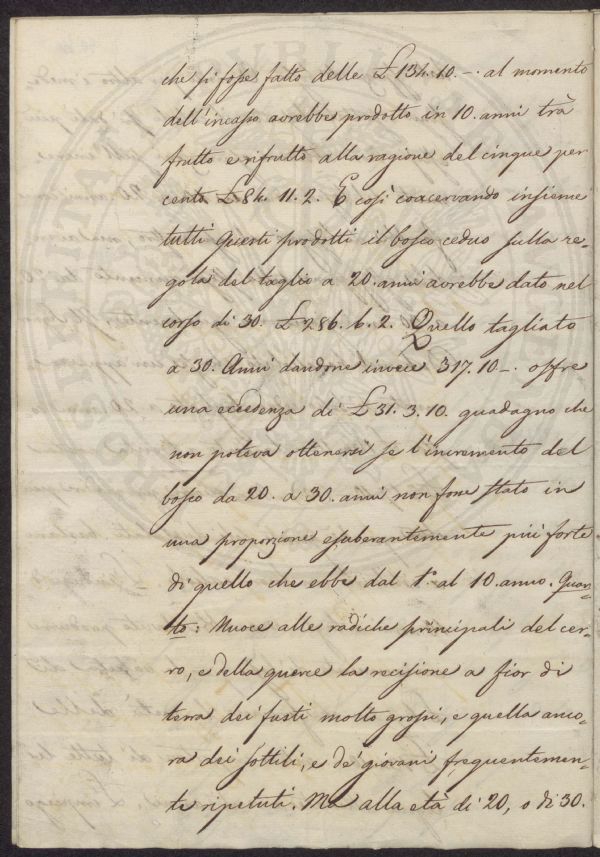 che si fosse fatto delle £ 134. 10. –. al momento
dell'incasso avrebbe prodotto in 10. anni trà
frutto e rifrutto alla ragione del cinque per
cento £ 84. 11. 2. E così coacervando insieme
tutti questi prodotti il bosco ceduo sulla re-
gola del taglio a 20. anni avrebbe dato nel
corso di 30. £ 286. 6. 2. Quello tagliato
a 30. Anni dandone invece 317. 10 –. offre
una eccedenza di £ 31. 3. 10. guadagno che
non poteva ottenersi se l'incremento del
bosco da 20. a 30. anni non fosse stato in
una proporzione esuberantemente più forte
di quello che ebbe dal 1.° al 10. anno. Quar-
to: Nuoce alle radiche principali del cer-
ro, e della querce la recisione a fior di
terra dei fusti molto grossi, e quella anco-
ra dei sottili, e de' giovani frequentemen-
te ripetuti. Ma alla età di 20, o di 30.